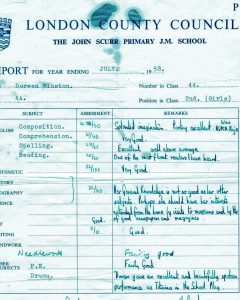 LONDON COUNTY COUNCIL
THE JOHN SCURR PRIMARY J.M. SCHOOL
PORT FOR YEAR ENDING JULY 1958.
Doreen Winston. Number in Class 44.
4A. Position in Class 2nd. (Girls)
SUBJECT ASSESSMENT REMARKS
Composition. Splendid imagination. Poetry excellent
Comprehension. Very Good.
Spelling. Excellent well above average.
Reading. One of the most fluent readers I have heard.
Very Good.
Her General Knowledge is not as good as her other
subjects. Perhaps she should have her interests
extended from the home by visits to museums and by the
of good newspapers and magazines
Good. Good.
Needlework Fairly good
P.E. Fairly Good
Drama, Doreen gave an excellent and beautifully spoken
performance as Titania in the School Play.